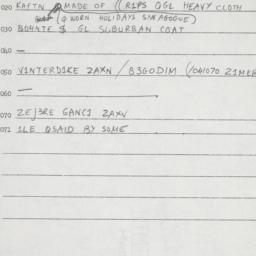 020 KAFTN MADE OF ((R1PS QGL HEAVY CLOTH
(Q WORN HOLIDAYS SYNAGOGUE)
030 BOHNTE $ GL SUBURBAN COAT
040 —
050 V1NTERD1KE ZAXN / B3GODIM (/041070 Z1MER
—
060
070 ZEJ3RE GANC1 ZAXN
071 1LE QSAID BY SOME